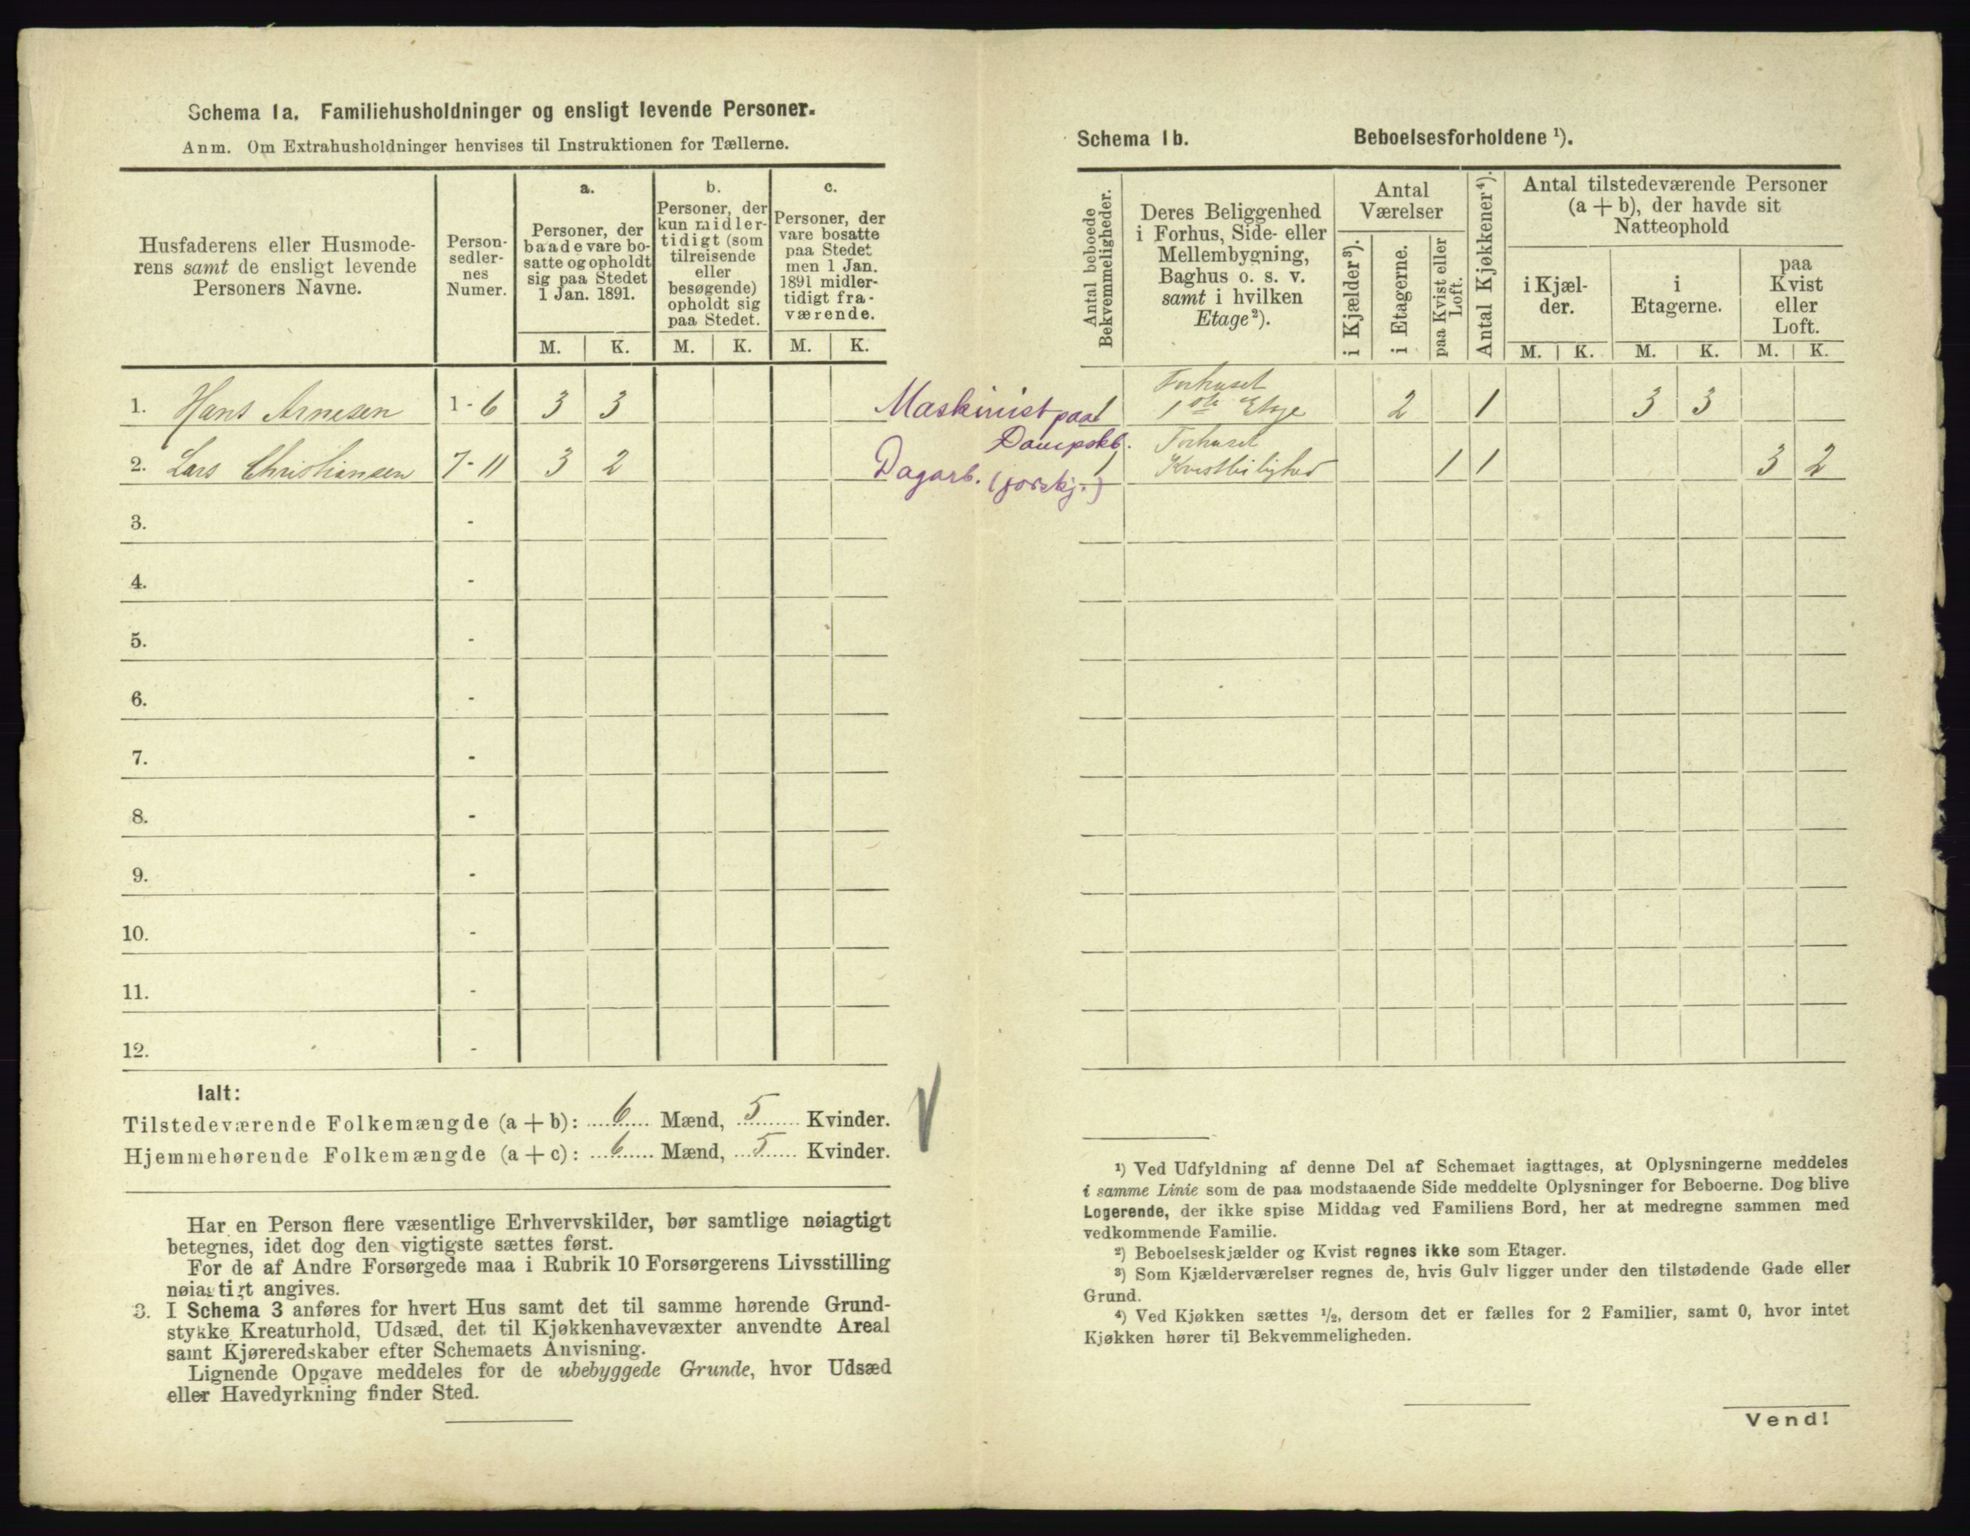 Schema 1a. Familiehusholdninger og ensligt levende Personer.
Anm. Om Extrahusholdninger henvises til Instruktionen for Tællerne.
Husfaderens eller Husmode-
rens samt de ensligt levende
Personers Navne.
Person-
sedler-
nes
Numer.
a.
Personer, der
baade vare bo-
satte og opholdt
sig paa Stedet
1 Jan. 1891.
b.
Personer, der
kun midler-
tidigt (som
tilreisende
eller
besøgende)
opholdt sig
paa Stedet.
c.
Personer, der
vare bosatte
paa Stedet
men 1 Jan.
1891 midler-
tidigt fra-
værende.
M. K. M. K. M. K.
1. Hans Arnesen 1-6 3 3
2. Lars Christiansen 7-11 3 2
3. -
4. -
5. -
6. -
7. -
8. -
9. -
10. -
11. -
12. -
Ialt:
Tilstedeværende Folkemængde (a+b): 6 Mænd, 5 Kvinder.
Hjemmehørende Folkemængde (a+c): 6 Mænd, 5 Kvinder.
Har en Person flere væsentlige Erhvervskilder, bør samtlige nøiagtigt
betegnes, idet dog den vigtigste sættes først.
For de af Andre Forsørgede maa i Rubrik 10 Forsørgerens Livsstilling
nøiagtigt angives.
3. I Schema 3 anføres for hvert Hus samt det til samme hørende Grund-
stykke Kreaturhold, Udsæd, det til Kjøkkenhavevæxter anvendte Areal
samt Kjøreredskaber efter Schemaets Anvisning.
Lignende Opgave meddeles for de ubebyggede Grunde, hvor Udsæd
eller Havedyrkning finder Sted.
Schema 1b. Beboelsesforholdene ¹).
Antal beboede
Bekvemmeligheder.
Deres Beliggenhed
i Forhus, Side- eller
Mellembygning,
Baghus o. s. v.
samt i hvilken
Etage²).
Antal
Værelser
i Kjælder³).
i Etagerne.
paa Kvist eller
Loft.
Antal Kjøkkener⁴).
Antal tilstedeværende Personer
(a + b), der havde sit
Natteophold
i Kjæl-
der.
i
Etagerne.
paa
Kvist
eller
Loft.
M. K. M. K. M. K.
Maskinist paa
Dampskb.
1 Forhuset
1ste Etage 2 1 3 3
Dagarb. (jordskj.)
1 Forhuset
Kvistleilighed 1 1 3 2
¹) Ved Udfyldning af denne Del af Schemaet iagttages, at Oplysningerne meddeles
i samme Linie som de paa modstaaende Side meddelte Oplysninger for Beboerne. Dog blive
Logerende, der ikke spise Middag ved Familiens Bord, her at medregne sammen med
vedkommende Familie.
²) Beboelseskjælder og Kvist regnes ikke som Etager.
³) Som Kjælderværelser regnes de, hvis Gulv ligger under den tilstødende Gade eller
Grund.
⁴) Ved Kjøkken sættes ½, dersom det er fælles for 2 Familier, samt 0, hvor intet
Kjøkken hører til Bekvemmeligheden.
Vend!